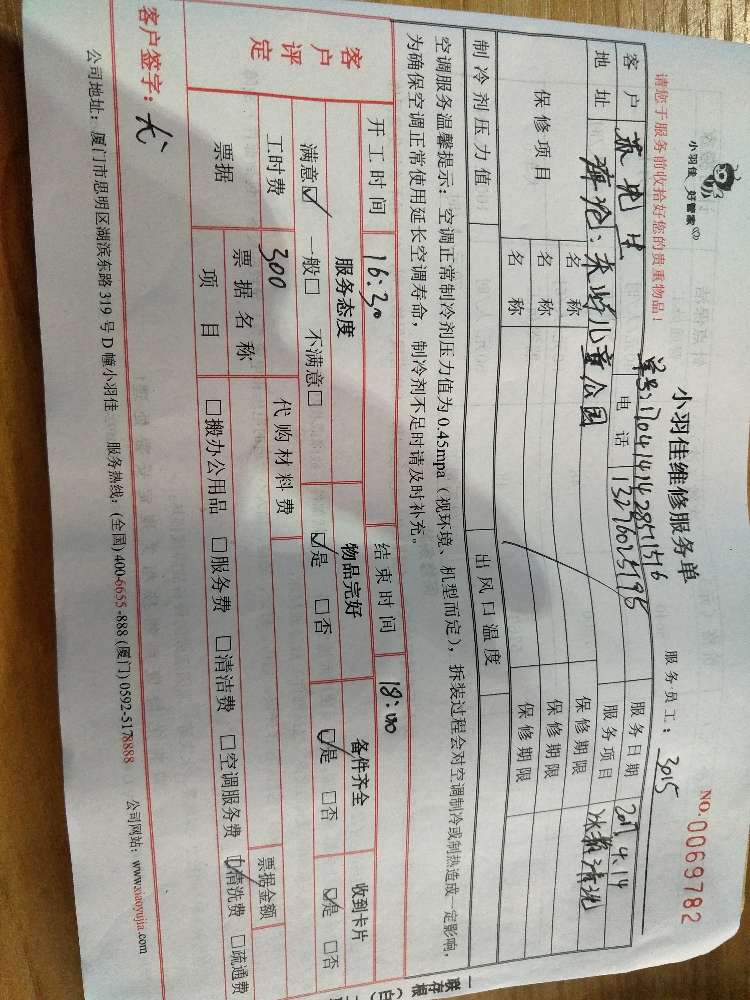 小羽佳 好管家
小羽佳维修服务单
NO.0069782
请您于服务前收拾好您的贵重物品！
单号:170414142851516
服务员工：3015
客户 苏先生 电话 13276025198 服务日期 2017.4.14
地址 海沧：未 儿童公园 服务项目 清洗
保修项目 名称 保修期限
名称 保修期限
名称 保修期限
制冷剂压力值 出风口温度
空调服务温馨提示：空调正常制冷剂压力值为 0.45mpa（视环境、机型而定），拆装过程会对空调制冷或制热造成一定影响，
为确保空调正常使用延长空调寿命，制冷剂不足时请及时补充。
开工时间 16:30 结束时间 18:00
客户评定
服务态度 物品完好 备件齐全 收到卡片
满意☑ 一般□ 不满意□ ☑是 □否 ☑是 □否 ☑是 □否
工时费 300 代购材料费 票据金额
票据 票据名称
项目 □搬办公用品 □服务费 □清洁费 □空调服务费 ☑清洗费 □疏通费
客户签字：
公司地址：厦门市思明区湖滨东路 319 号 D 幢小羽佳 服务热线：(全国) 400-6655-888 (厦门) 0592-5178888 公司网站：www.xiaoyujia.com
一联存根（白）